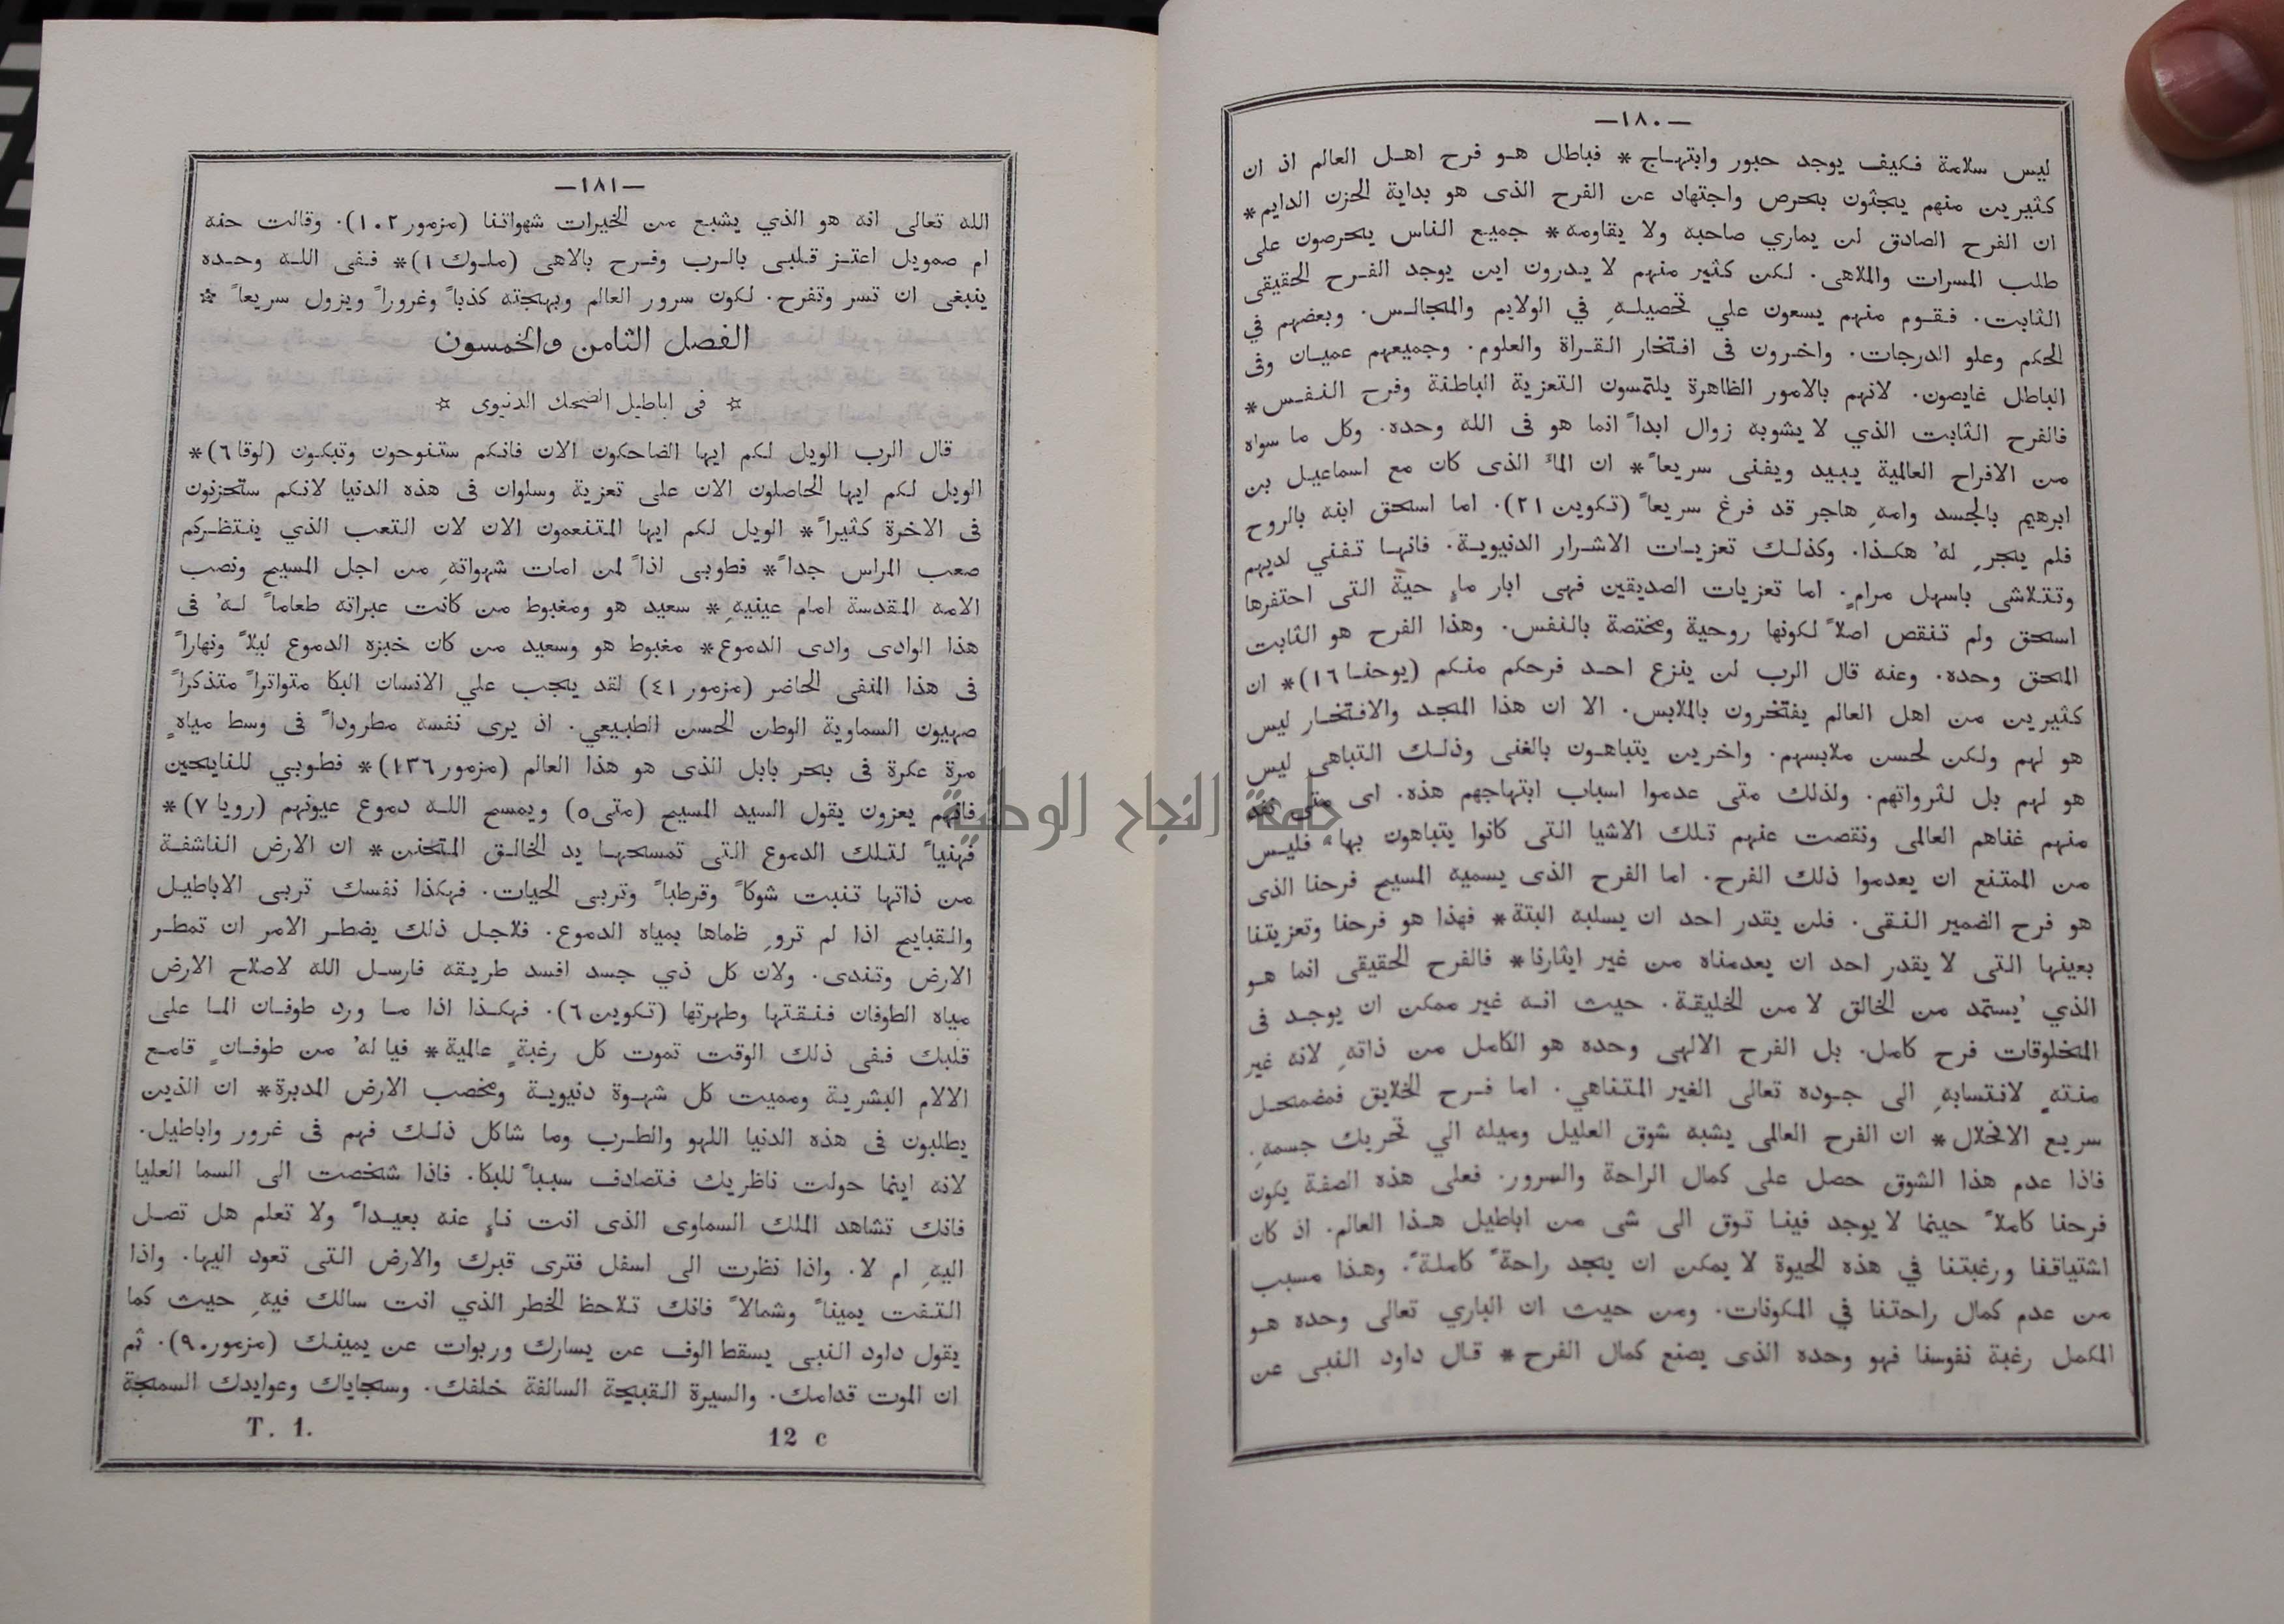 —١٨٠—
ليس سلامة فكيف يوجد حبور وابتهاج* فباطل هو فرح اهل العالم اذ ان
كثيرين منهم يبحثون بحرص واجتهاد عن الفرح الذى هو بداية الحزن الدايم*
ان الفرح الصادق لن يماري صاحبه ولا يقاومه* جميع الناس يحرصون على
طلب المسرات والملاهى. لكن كثير منهم لا يدرون اين يوجد الفرح الحقيقى
الثابت. فقوم منهم يسعون علي تحصيلهِ في الولايم والمجالس. وبعضهم في
الحكم وعلو الدرجات. واخرون فى افتخار القراة والعلوم. وجميعهم عميان وفى
الباطل غايصون. لانهم بالامور الظاهرة يلتمسون التعزية الباطنة وفرح النفس*
فالفرح الثابت الذي لا يشوبه زوال ابداً انما هو فى الله وحده. وكل ما سواه
من الافراح العالمية يبيد ويفنى سريعاً* ان الماء الذى كان مع اسماعيل بن
ابرهيم بالجسد وامهِ هاجر قد فرغ سريعاً (تكوين ٢١). اما اسحق ابنه بالروح
فلم يجرِ لهُ هكذا. وكذلك تعزيات الاشرار الدنيوية. فانها تفني لديهم
وتتلاشى باسهل مرامٍ. اما تعزيات الصديقين فهى ابار ماءٍ حية التى احتفرها
اسحق ولم تنقص اصلاً لكونها روحية ومختصة بالنفس. وهذا الفرح هو الثابت
المحق وحده. وعنه قال الرب لن ينزع احد فرحكم منكم (يوحنا ١٦)* ان
كثيرين من اهل العالم يفتخرون بالملابس. الا ان هذا المجد والافتخار ليس
هو لهم ولكن لحسن ملابسهم. واخرين يتباهون بالغنى وذلك التباهى ليس
هو لهم بل لثرواتهم. ولذلك متى عدموا اسباب ابتهاجهم هذه. اى متى نفد
منهم غناهم العالمى ونقصت عنهم تلك الاشيا التى كانوا يتباهون بها* فليس
من الممتنع ان يعدموا ذلك الفرح. اما الفرح الذى يسميه المسيح فرحنا الذى
هو فرح الضمير النقى. فلن يقدر احد ان يسلبه البتة* فهذا هو فرحنا وتعزيتنا
بعينها التى لا يقدر احد ان يعدمناه من غير ايثارنا* فالفرح الحقيقى انما هو
الذي يُستمد من الخالق لا من الخليقة. حيث انه غير ممكن ان يوجد فى
المخلوقات فرح كامل. بل الفرح الالهى وحده هو الكامل من ذاتهِ لانه غير
منتهٍ لانتسابهِ الى جوده تعالى الغير المتناهي. اما فرح الخلايق فمضمحل
سريع الانحلال* ان الفرح العالمى يشبه شوق العليل وميله الي تحريك جسمهِ.
فاذا عدم هذا الشوق حصل على كمال الراحة والسرور. فعلى هذه الصفة يكون
فرحنا كاملاً حينما لا يوجد فينا توق الى شى من اباطيل هذا العالم. اذ كان
اشتياقنا ورغبتنا في هذه الحيوة لا يمكن ان يجد راحةً كاملةً. وهذا مسبب
من عدم كمال راحتنا في المكونات. ومن حيث ان الباري تعالى وحده هو
المكمل رغبة نفوسنا فهو وحده الذى يصنع كمال الفرح* قال داود النبى عن
—١٨١—
الله تعالى انه هو الذي يشبع من الخيرات شهواتنا (مزمور ١٠٢). وقالت حنه
ام صمويل اعتز قلبى بالرب وفرح بالاهى (ملوك ١)* ففى الله وحده
ينبغى ان تسر وتفرح. لكون سرور العالم وبهجته كذباً وغروراً ويزول سريعاً ☆
الفصل الثامن والخمسون
☆ فى اباطيل الضحك الدنيوى ☆
قال الرب الويل لكم ايها الضاحكون الان فانكم ستنوحون وتبكون (لوقا ٦)*
الويل لكم ايها الحاصلون الان على تعزية وسلوان فى هذه الدنيا لانكم ستحزنون
فى الاخرة كثيراً* الويل لكم ايها المتنعمون الان لان التعب الذي ينتظركم
صعب المراس جداً* فطوبى اذاً لمن امات شهواتهِ من اجل المسيح ونصب
الامه المقدسة امام عينيهِ* سعيد هو ومغبوط من كانت عبراته طعاماً لهُ فى
هذا الوادى وادى الدموع* مغبوط هو وسعيد من كان خبزه الدموع ليلاً ونهاراً
فى هذا المنفى الحاضر (مزمور ٤١) لقد يجب علي الانسان البكا متواتراً متذكراً
صهيون السماوية الوطن الحسن الطبيعي. اذ يرى نفسه مطروداً فى وسط مياهٍ
مرة عكرة فى بحر بابل الذى هو هذا العالم (مزمور ١٣٦)* فطوبي للنايحين
فانهم يعزون يقول السيد المسيح (متى ٥) ويمسح الله دموع عيونهم (رويا ٧)*
فهنياً لتلك الدموع التى تمسحها يد الخالق المتحنن* ان الارض الناشفة
من ذاتها تنبت شوكاً وقرطباً وتربى الحيات. فهكذا نفسك تربى الاباطيل
والقبايح اذا لم تروِ ظماها بمياه الدموع. فلاجل ذلك يضطر الامر ان تمطر
الارض وتندى. ولان كل ذي جسد افسد طريقه فارسل الله لاصلاح الارض
مياه الطوفان فنقتها وطهرتها (تكوين ٦). فهكذا اذا ما ورد طوفان الما على
قلبك ففى ذلك الوقت تموت كل رغبةٍ عالمية* فيا لهُ من طوفانٍ قامع
الالام البشرية ومميت كل شهوة دنيوية ومخصب الارض المدبرة* ان الذين
يطلبون فى هذه الدنيا اللهو والطرب وما شاكل ذلك فهم فى غرور واباطيل.
لانه اينما حولت ناظريك فتصادف سبباً للبكا. فاذا شخصت الى السما العليا
فانك تشاهد الملك السماوى الذى انت ناءٍ عنه بعيداً ولا تعلم هل تصل
اليهِ ام لا. واذا نظرت الى اسفل فترى قبرك والارض التى تعود اليها. واذا
التفت يميناً وشمالاً فانك تلاحظ الخطر الذي انت سالك فيهِ حيث كما
يقول داود النبى يسقط الوف عن يسارك وربوات عن يمينك (مزمور ٩٠). ثم
ان الموت قدامك. والسيرة القبيحة السالفة خلفك. وسجاياك وعوايدك السمجة
T. 1. 12 c
جامعة النجاح الوطنية